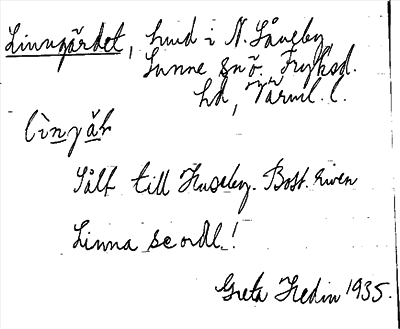 Linngärdet, hmd i N. Låneby
Sunne snö. Fryksd.
hd, Värml. l.
lìnjä̀ṛ
Sålt till Huseby. Bost. riven
Linna se ordl.!
Greta Hedin 1935.